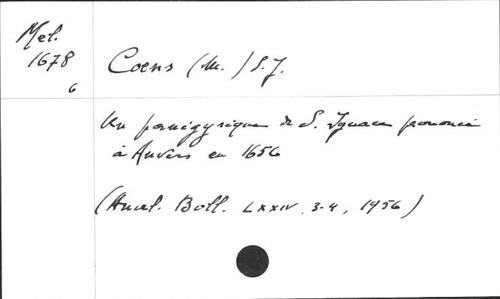 Mel.
1678
6
Coens (M.) S.J.
Un panégyrique de S. Ignace prononcé
à Anvers en 1656
(Anal. Boll. LXXIV, 3-4, 1956)